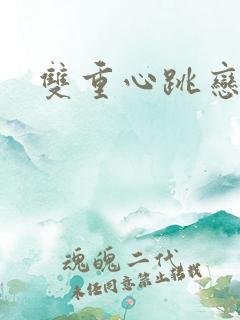 雙重心跳戀
魂魄二代
未任同意禁止轉載